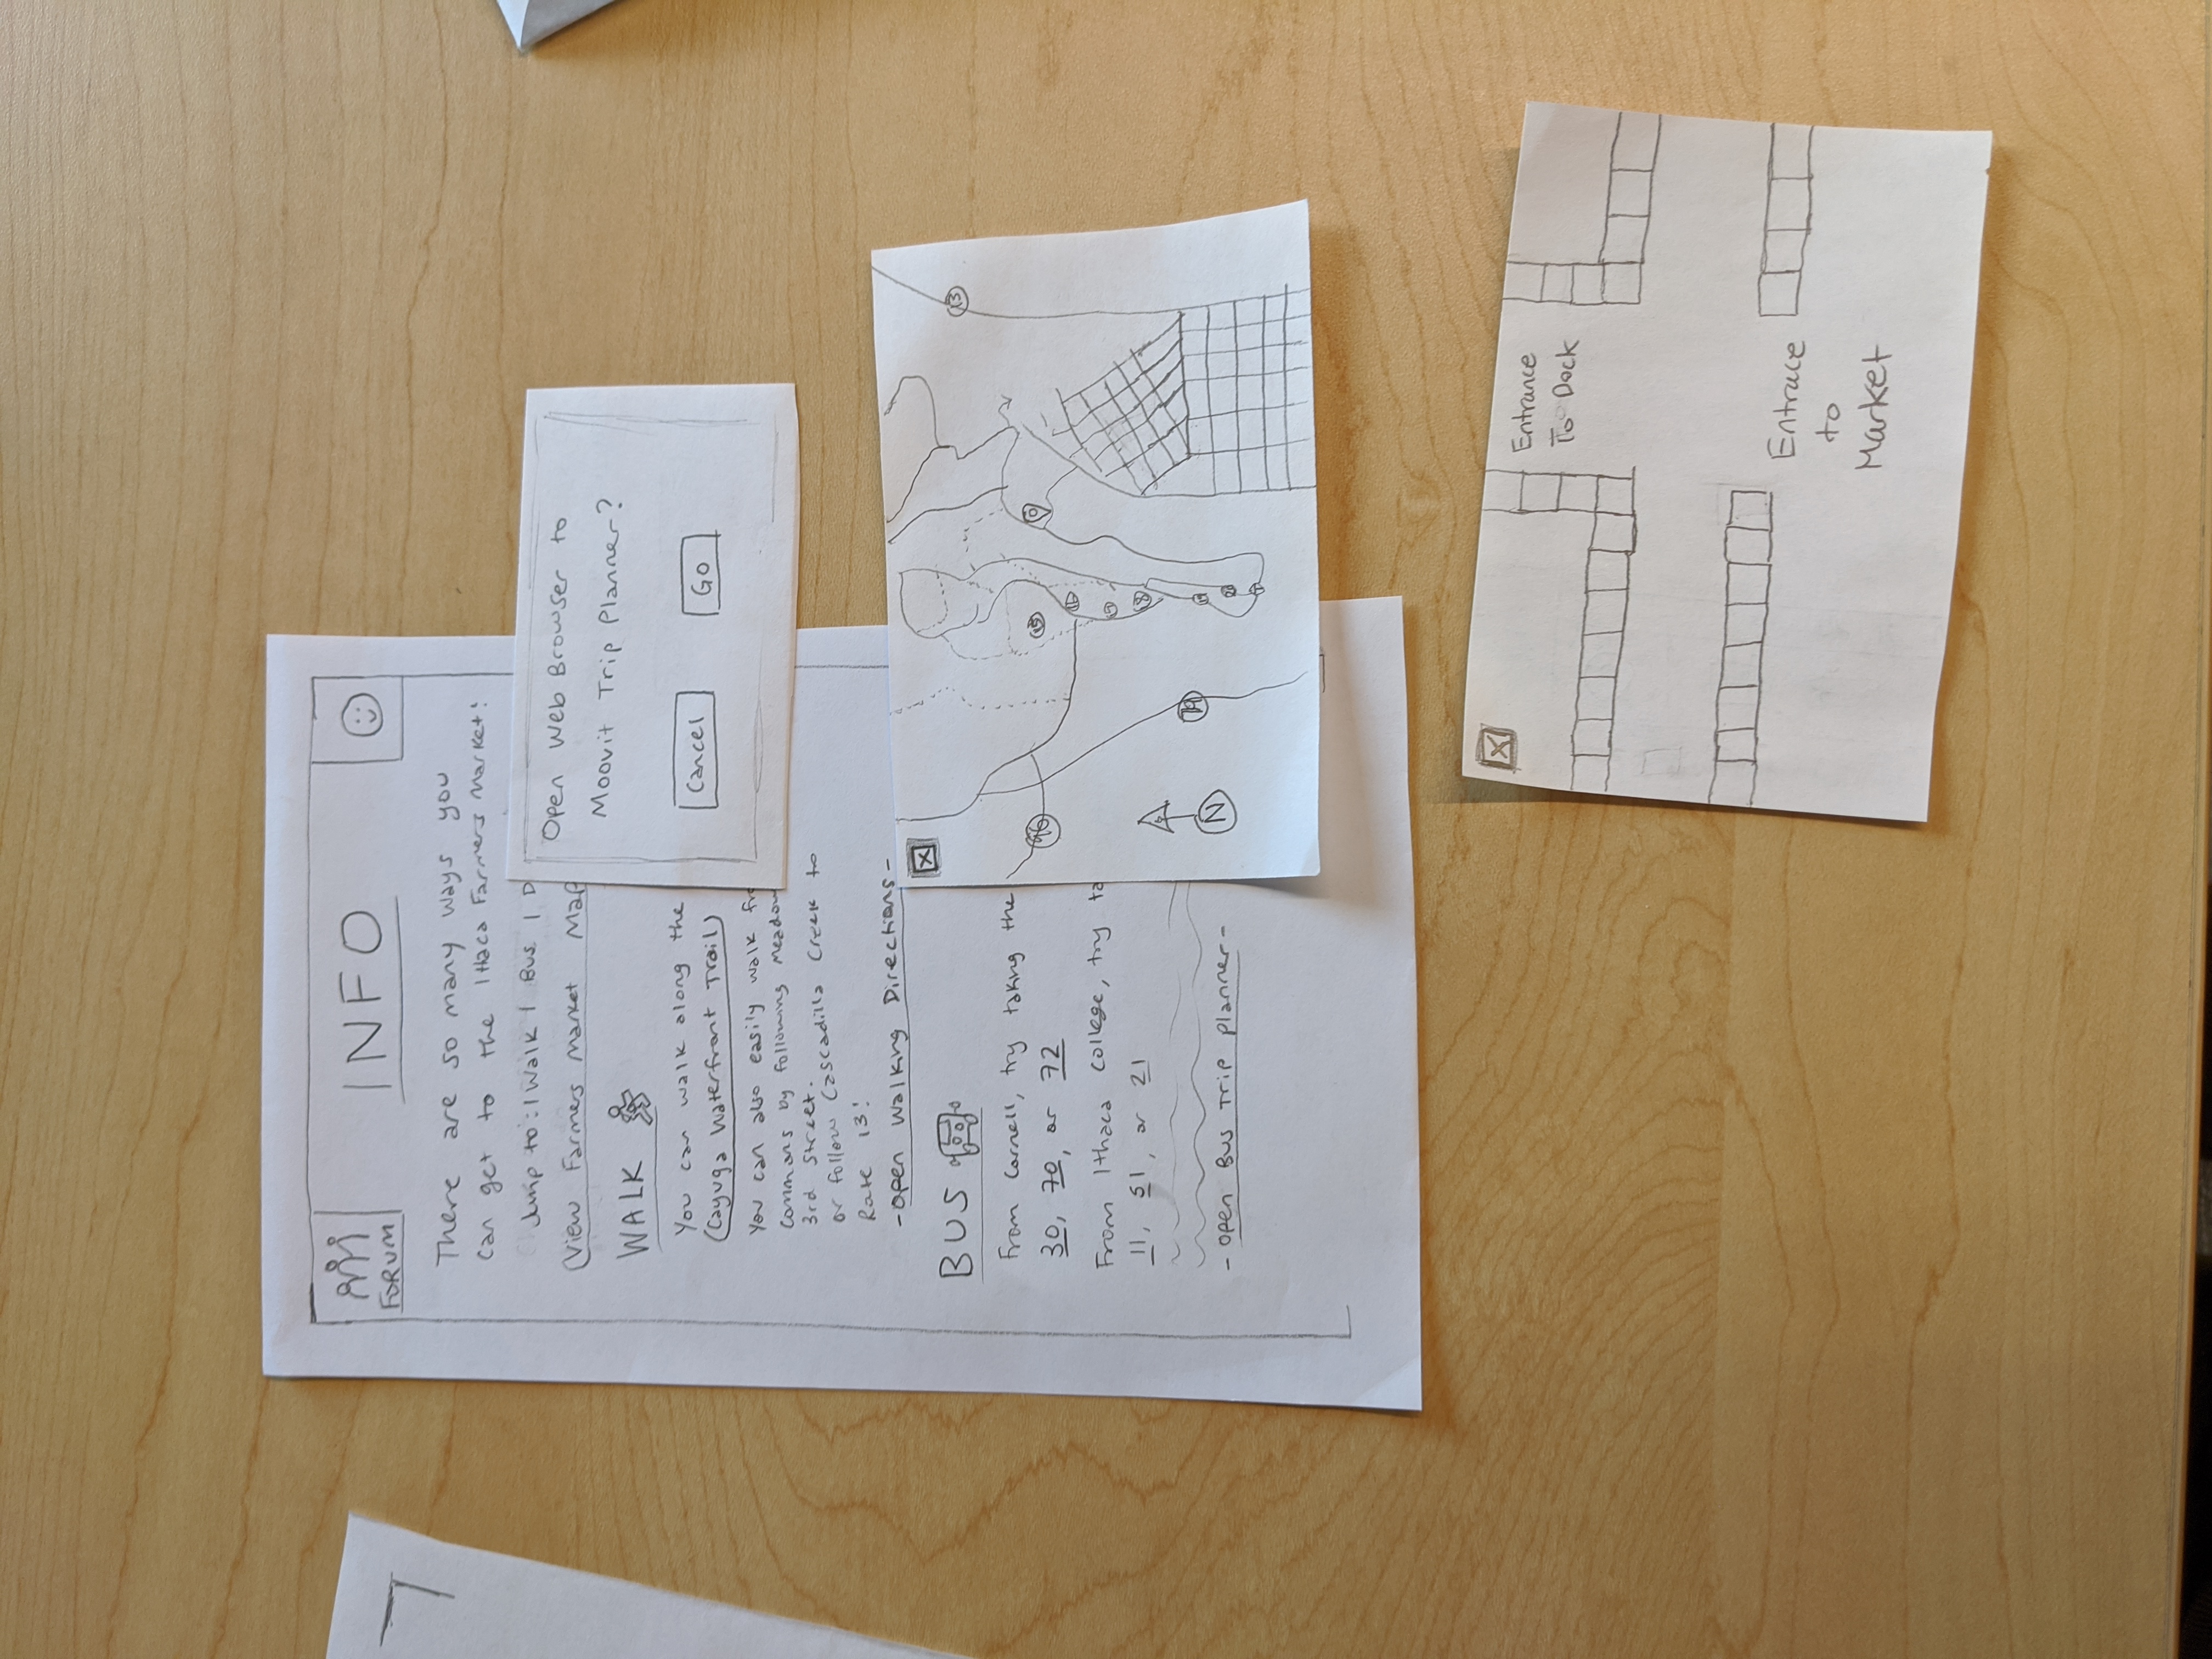 FORUM
INFO
There are so many ways you
can get to the Ithaca Farmers Market!
Jump to: | Walk | Bus | D
View Farmers Market Map
WALK
You can walk along the
(Cayuga Waterfront Trail)
You can also easily walk fro
commons by following Meadow
3rd Street.
or follow Cascadilla Creek to
Rate 13!
-Open Walking Directions-
BUS
From Cornell, try taking the
30, 70, or 72
From Ithaca College, try ta
11, 51, or 21
- Open Bus Trip Planner -
Open Web Browser to
Moovit Trip Planner?
Cancel
GO
X
13
96
15
16
18
79
N
X
Entrance
To Dock
Entrace
to
Market